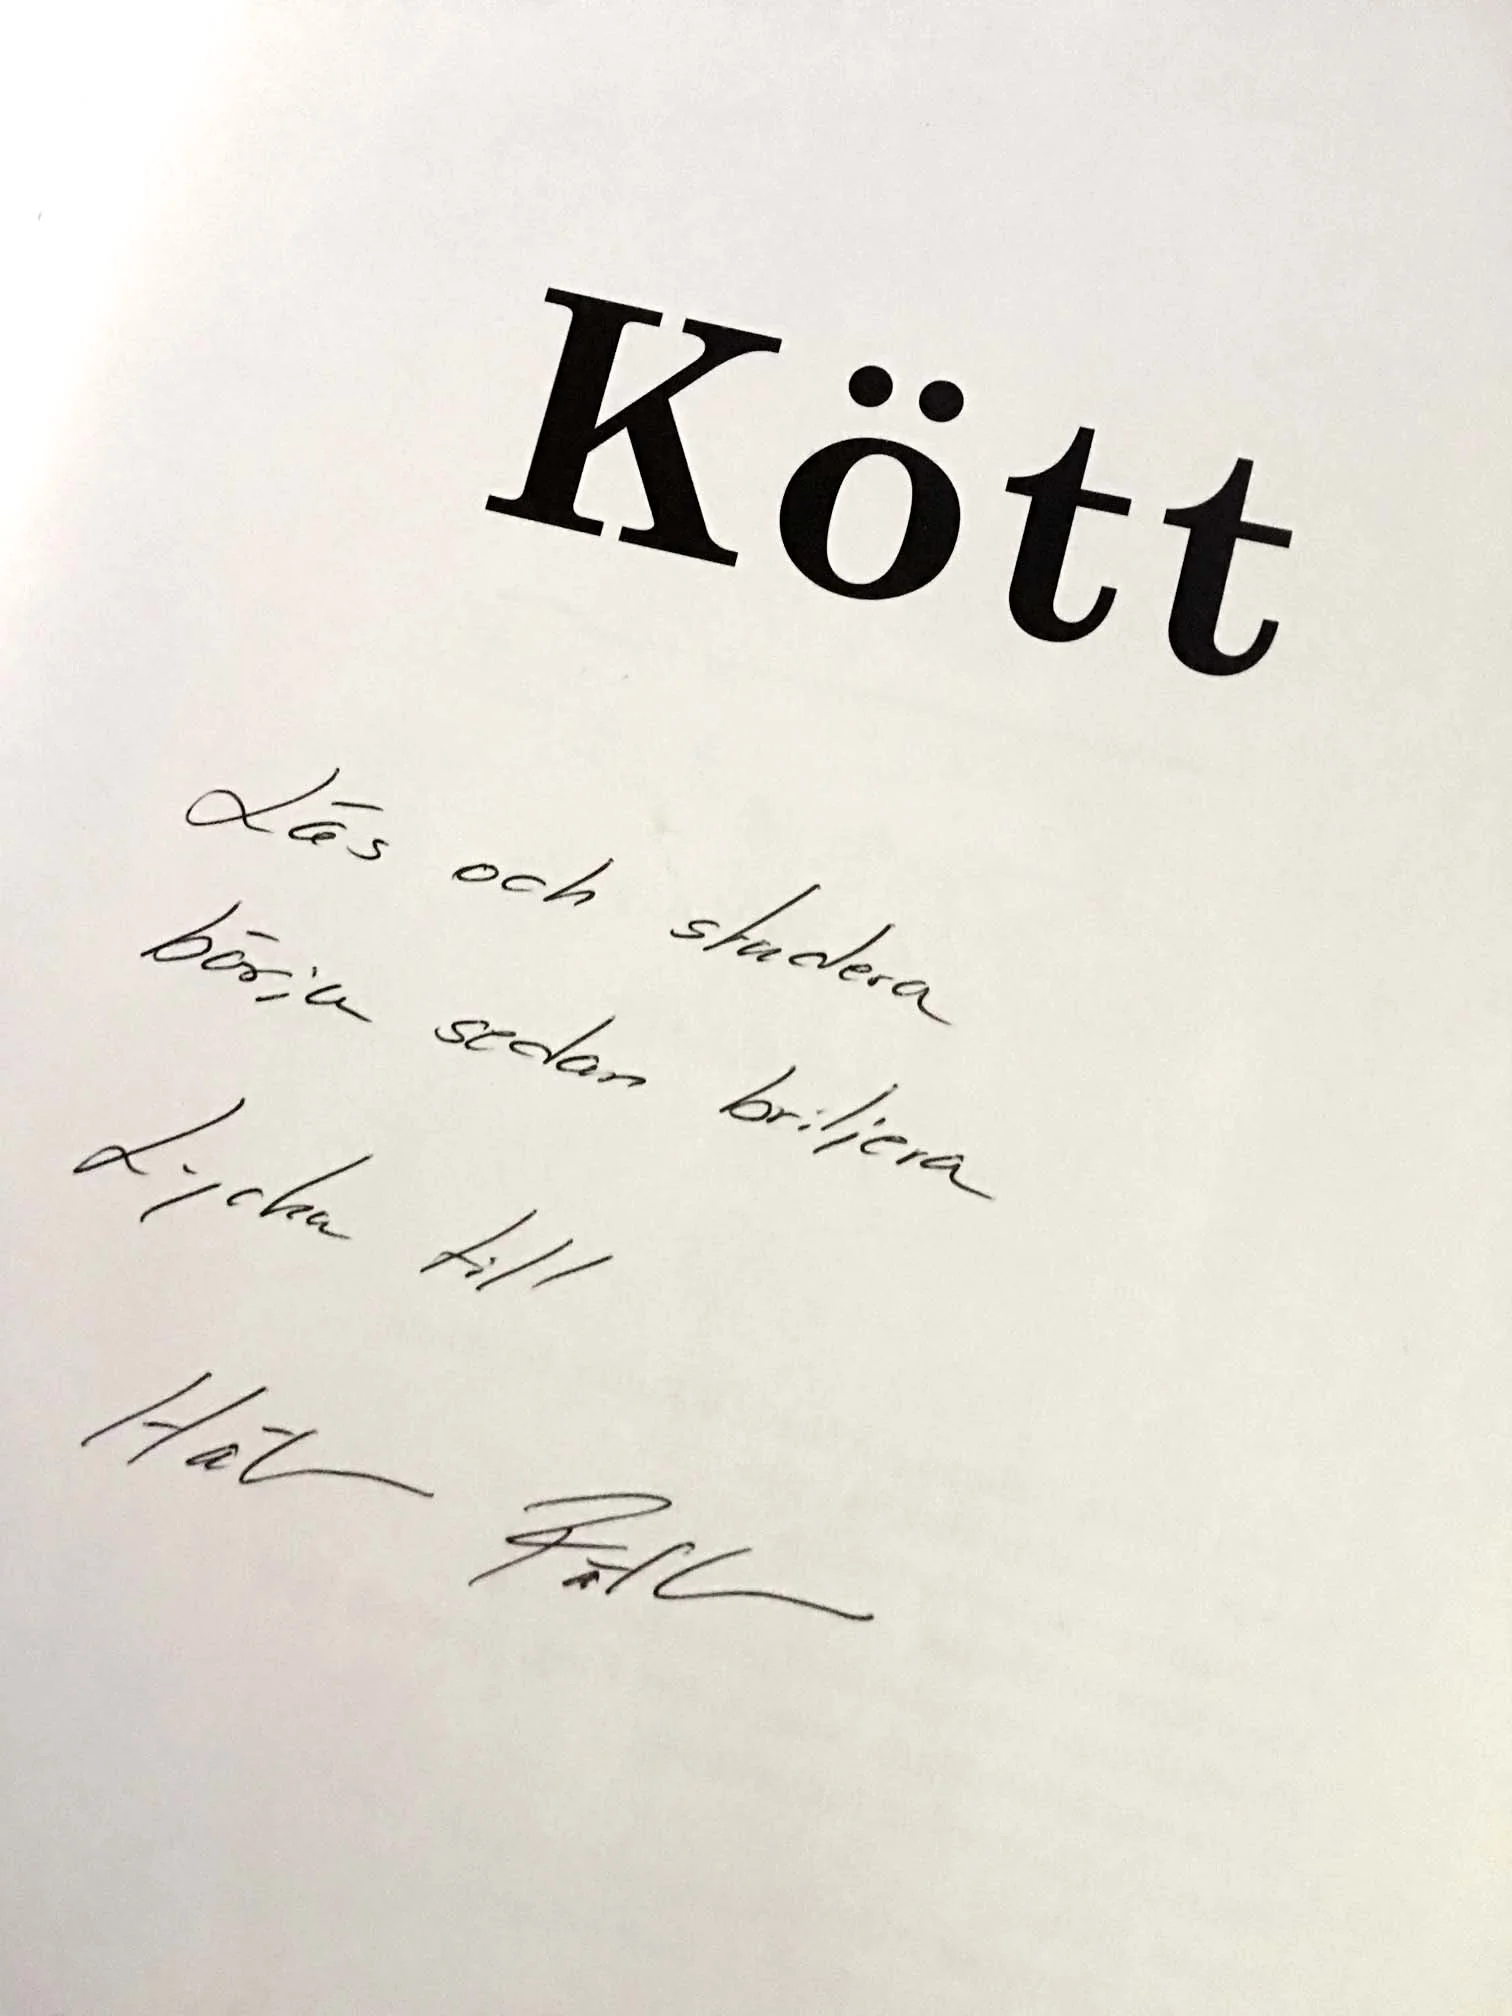 Kött
Läs och studera
börja sedan briljera
Lycka till